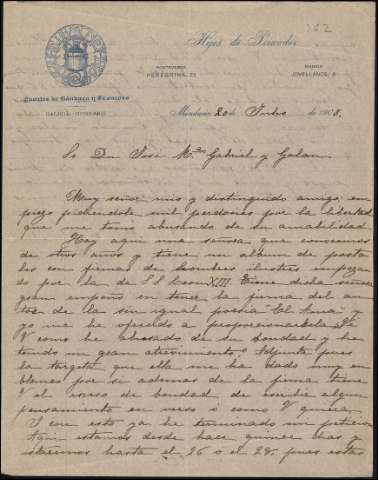 302
Hijos de Peinador
PONTEVEDRA
PEREGRINA, 25
MADRID
JOVELLANOS, 5
Puertos de Mondariz y Troncoso
GALICIA
Mondariz 20 de Julio de 1903.
Sr Dn José Mª Gabriel y Galan
Muy señor mio y distinguido amigo: em
piezo pidiendole mil perdones por la libertad
que me tomo abusando de su amabilidad
Hay aqui una señora que conocemos
de otros años y tiene un album de posta
les con firmas de hombres ilustres empezan
do por la de S S Leon XIII. Tiene dicha señora
gran empeño en tener la firma del au
tor de la sin igual poesia "El Ama" y
yo me he ofrecido a proporcionarsela. De
V como he abusado de su bondad y he
tenido un gran atrevimiento. Adjunta pues
la targeta que ella me ha dado muy en
blanco por si ademas de la firma tiene
V el exceso de bondad de escribir algun
pensamiento en verso ó como V quiera.
Y con esto ya he terminado mi peticion
Aqui estamos desde hace quince dias y
estaremos hasta el 26 ó el 28. pues estas